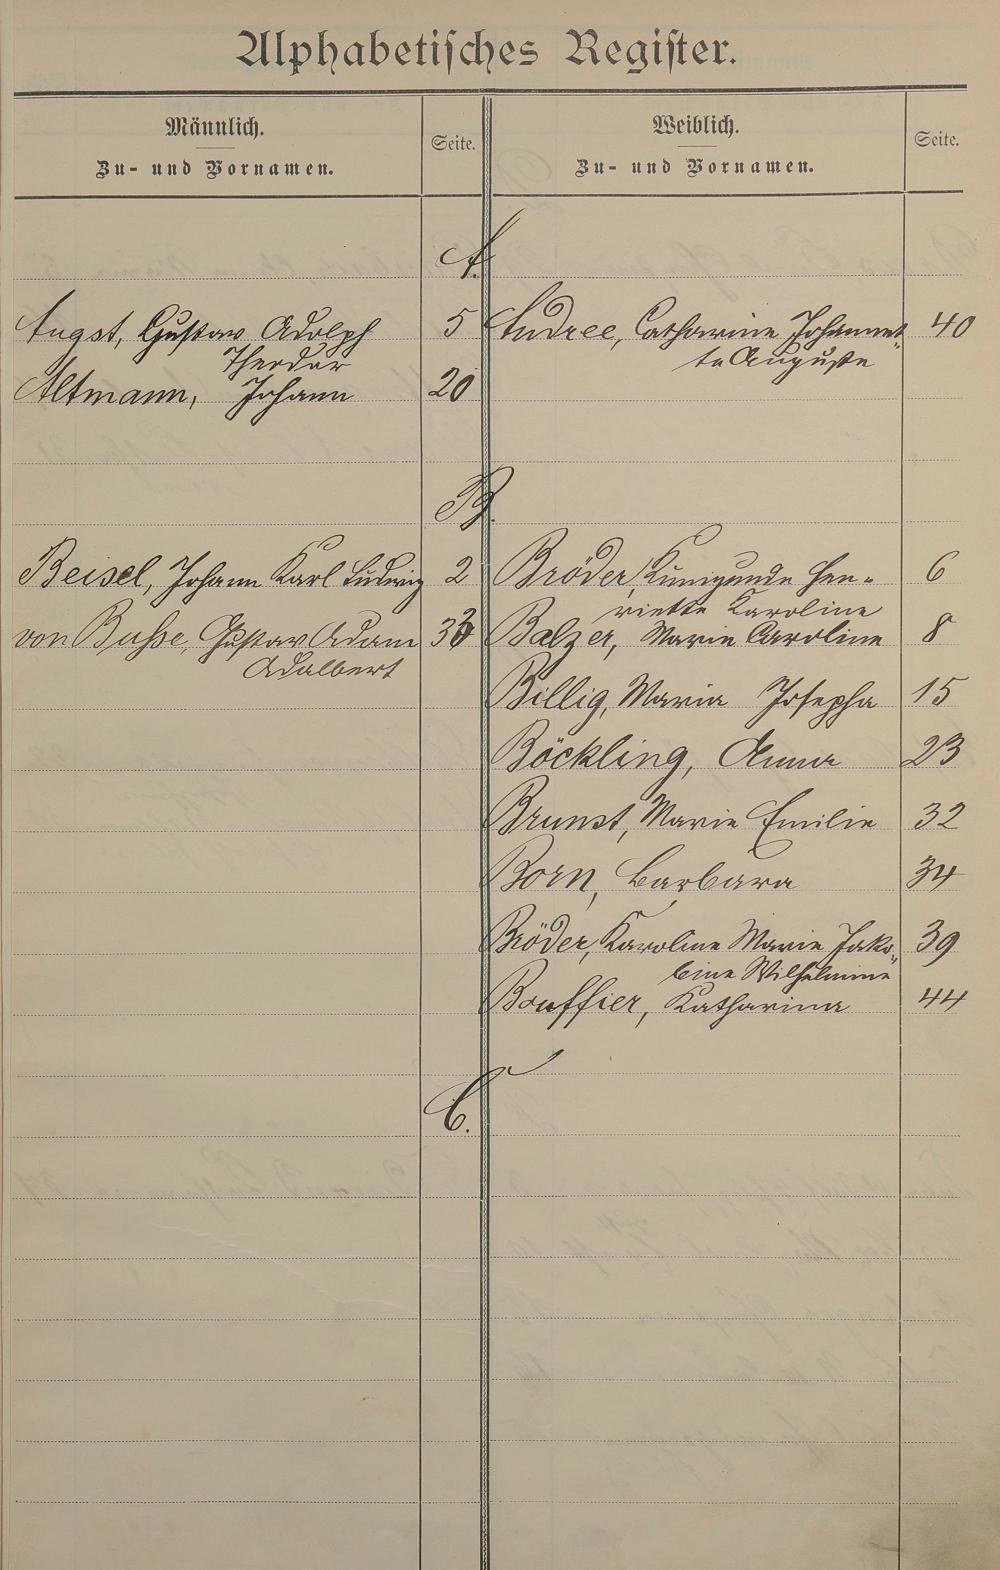 Alphabetisches Register.
Männlich.
Zu- und Vornamen.
Seite.
Weiblich.
Zu- und Vornamen.
Seite.
A.
Angst, Gustav Adolph 5
Theodor
Altmann, Johann 20
Andree, Catharine Johannet- 40
te Auguste
B.
Beisel, Johann Karl Ludwig 2
von Busse, Gustav Adam 33
Adalbert
Bröder, Kunigunde Hen- 6
riette Karoline
Balzer, Marie Caroline 8
Billig, Maria Josepha 15
Böckling, Anna 23
Brunst, Marie Emilie 32
Born, Barbara 34
Bröder, Karoline Marie Jako- 39
bine Wilhelmine
Bouffier, Katharina 44
C.